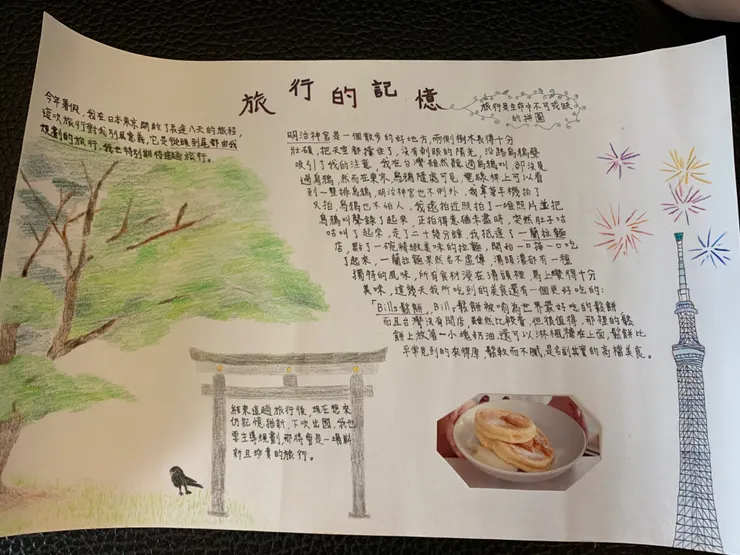 旅行的記憶
旅行是生命中不可或缺
的拼圖
今年暑假,我在日本東京開啟了長達八天的旅程,
這次旅行對我別具意義,它是從頭到尾都由我
規劃的旅行,我也特別期待這趟旅行。
明治神宮是一個散步的好地方,兩側樹木長得十分
壯碩,把天空都擋住了,沒有刺眼的陽光,沿路烏鴉聲
吸引了我的注意,我在台灣雖然聽過烏鴉叫,即沒見
過烏鴉,然而在東京,烏鴉隨處可見,電線桿上可以看
到一整排烏鴉,明治神宮也不例外,我拿著手機拍了
又拍,烏鴉也不怕人,我遠拍近照拍了一堆照片並把
烏鴉叫聲錄了起來,正拍得意猶未盡時,突然肚子咕
咕叫了起來,走了二十幾分鐘,我抵達了一蘭拉麵
店,點了一碗精緻美味的拉麵,開始一口接一口吃
了起來,一蘭拉麵果然名不虛傳,湯頭濃郁有一種
獨特的風味,所有食材浸在湯頭裡,馬上變得十分
美味,這幾天我所吃到的美食還有一個更好吃的:
「Bills鬆餅」,Bills鬆餅被喻為世界最好吃的鬆餅
而且台灣沒有開店,雖然比較貴,但很值得,那裡的鬆
餅上放著一小塊奶油,還可以淋楓糖在上面,鬆餅比
平常見到的來得厚,鬆軟而不膩,是名副其實的高檔美食。
結束這趟旅行後,現在想來
仍記憶猶新,下次出國,我也
要主導規劃,那將會是一場嶄
新且珍貴的旅行。